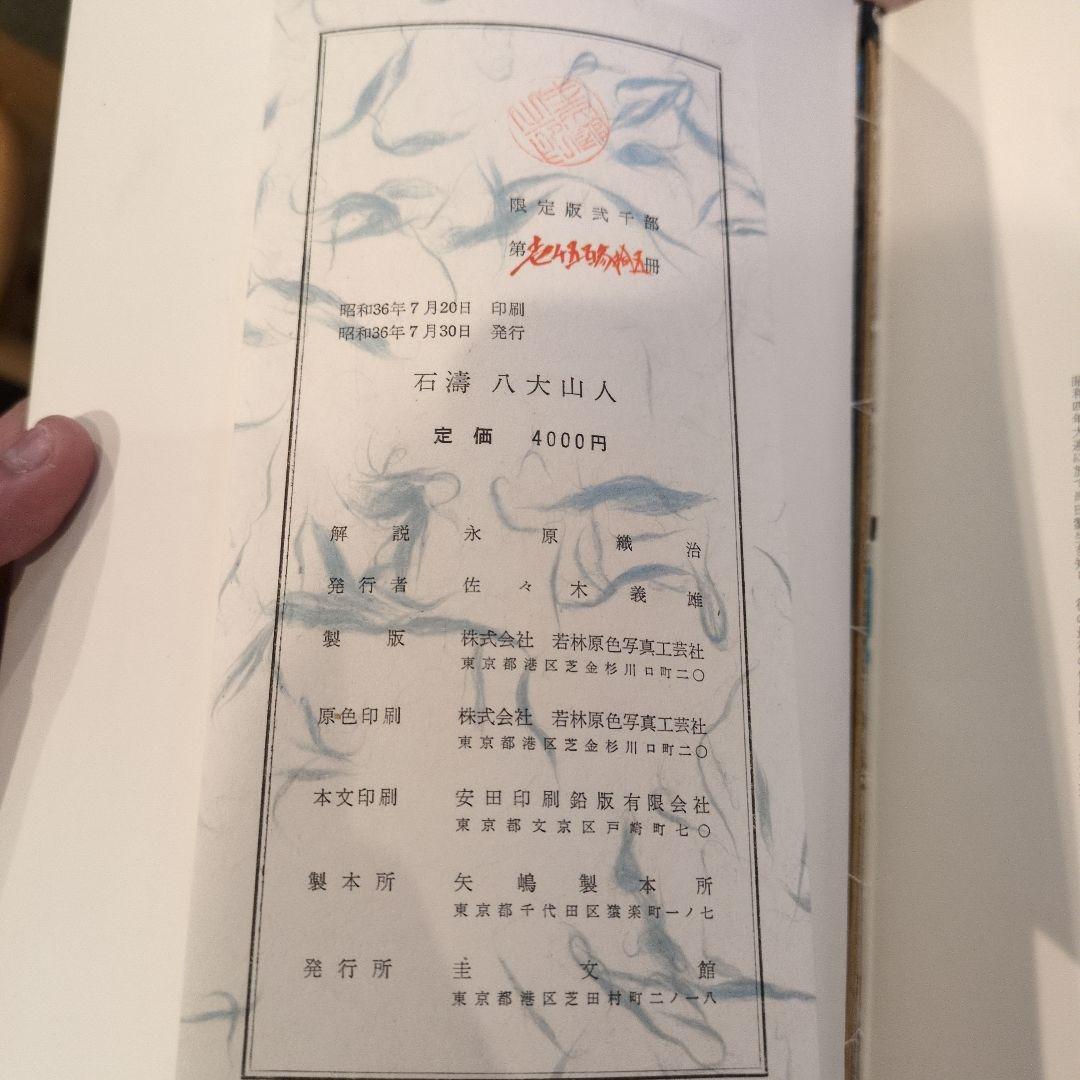 限定版弐千部
第壱千五百参拾五冊
昭和36年7月20日 印刷
昭和36年7月30日 発行
石濤 八大山人
定価 4000円
解説 永原織治
発行者 佐々木義雄
製版 株式会社 若林原色写真工芸社
東京都港区芝金杉川口町二〇
原色印刷 株式会社 若林原色写真工芸社
東京都港区芝金杉川口町二〇
本文印刷 安田印刷鉛版有限会社
東京都文京区戸崎町七〇
製本所 矢嶋製本所
東京都千代田区猿楽町一ノ七
発行所 圭文館
東京都港区芝田村町二ノ一八